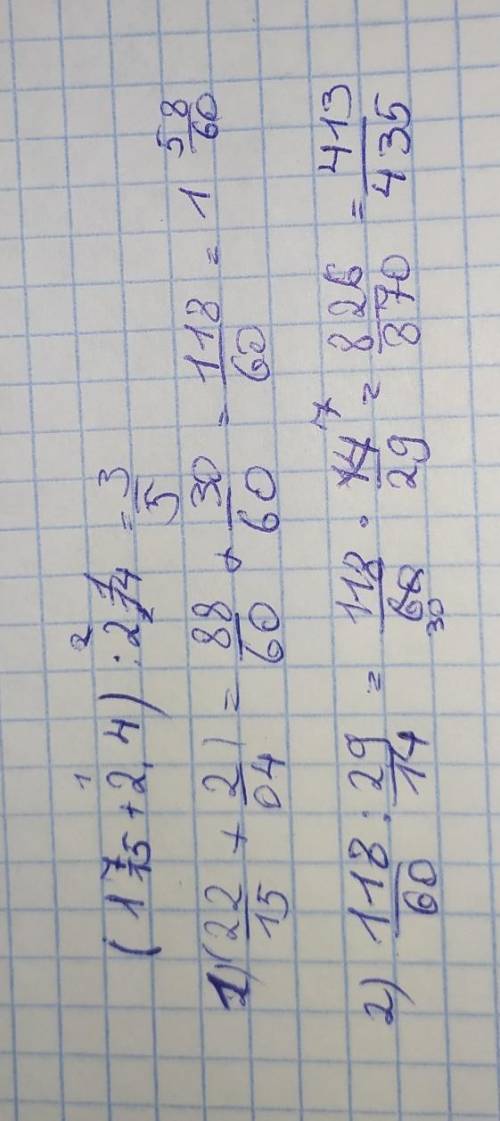 (1 7/15 + 2,4) : 2 1/14 = 3/5
1) (22/15 + 2/04) = 88/60 + 30/60 = 118/60 = 1 58/60
2) 118/60 : 29/14 = 118/60 · 14/29 = 826/870 = 413/435